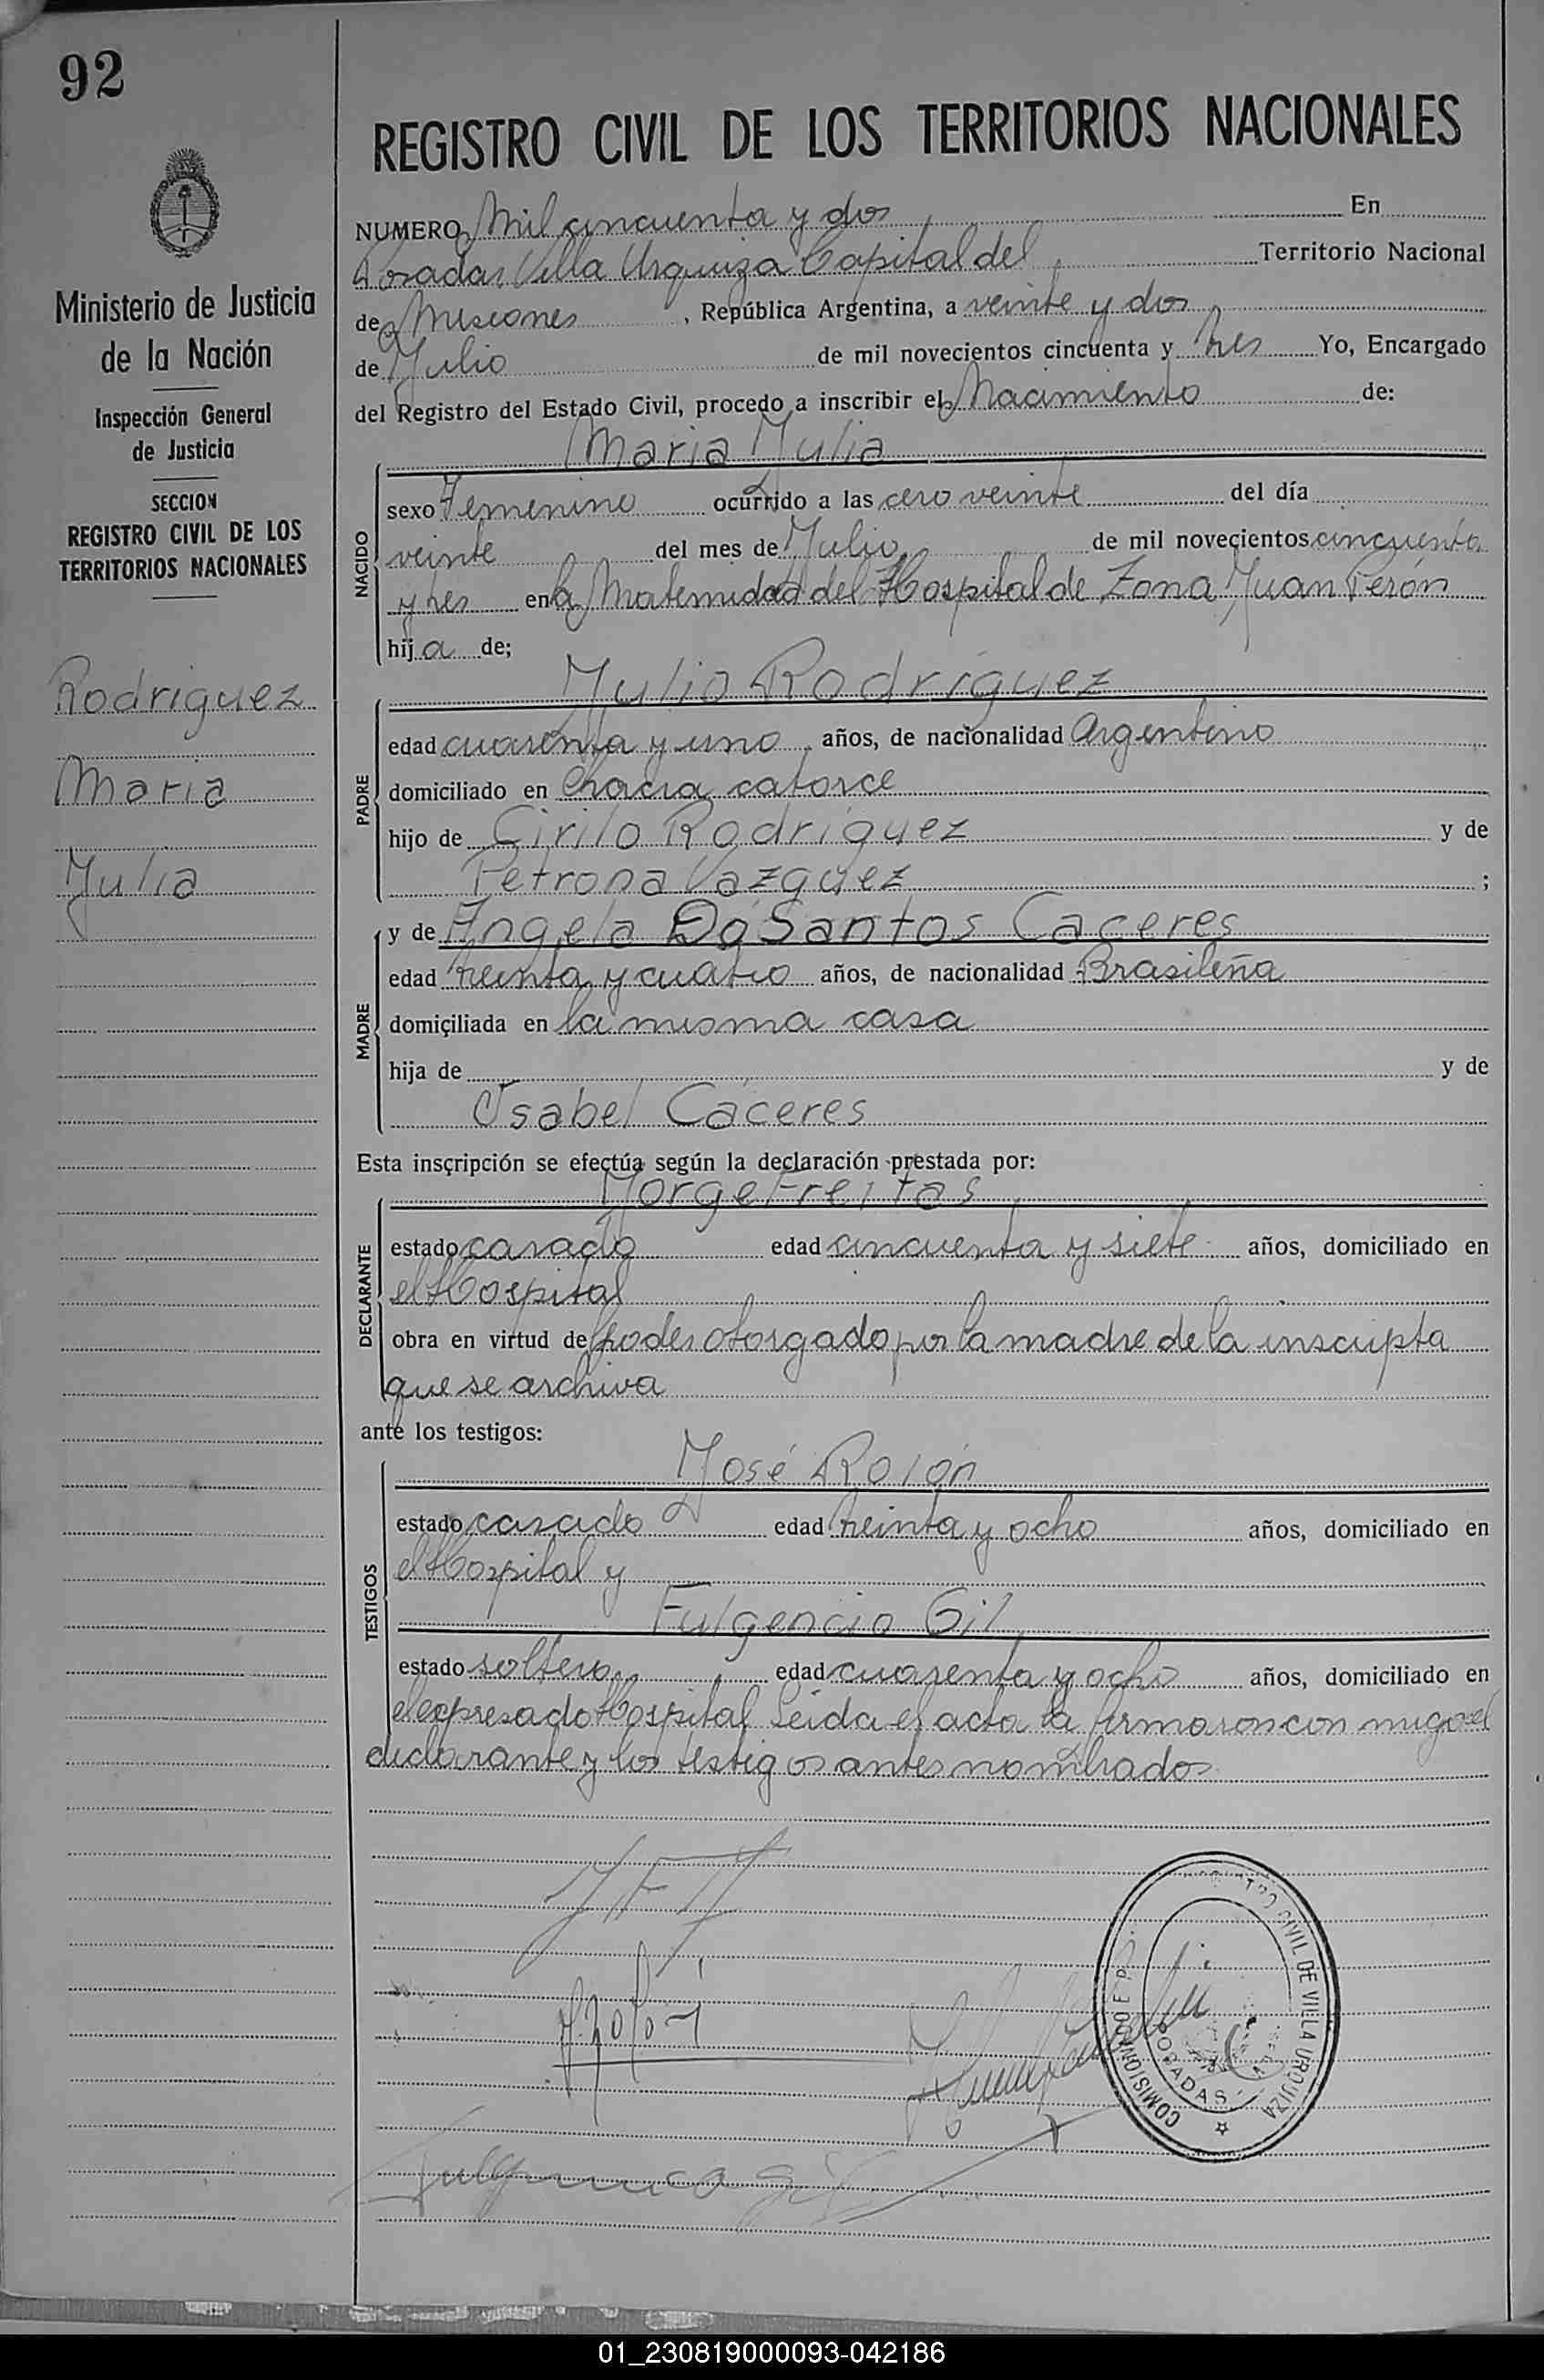 92
Ministerio de Justicia
de la Nación
Inspección General
de Justicia
SECCION
REGISTRO CIVIL DE LOS
TERRITORIOS NACIONALES
Rodriguez
Maria
Julia
REGISTRO CIVIL DE LOS TERRITORIOS NACIONALES
NUMERO Mil cincuenta y dos En
Posadas Villa Urquiza Capital del Territorio Nacional
de Misiones, República Argentina, a veinte y dos
de Julio de mil novecientos cincuenta y tres Yo, Encargado
del Registro del Estado Civil, procedo a inscribir el Nacimiento de:
Maria Julia
NACIDO
sexo Femenino ocurrido a las cero veinte del día
veinte del mes de Julio de mil novecientos cincuenta
y tres en la Maternidad del Hospital de Zona Juan Perón
hija de;
Julio Rodríguez
PADRE
edad cuarenta y uno años, de nacionalidad Argentino
domiciliado en Chacra catorce
hijo de Cirilo Rodríguez y de
Petrona Vazquez ;
MADRE
y de Angela Do Santos Caceres
edad treinta y cuatro años, de nacionalidad Brasileña
domiciliada en la misma casa
hija de y de
Isabel Caceres
Esta inscripción se efectúa según la declaración prestada por:
Jorge Freitas
DECLARANTE
estado casado edad cincuenta y siete años, domiciliado en
el Hospital
obra en virtud de poder otorgado por la madre de la inscripta
que se archiva
ante los testigos:
José Rolón
TESTIGOS
estado casado edad treinta y ocho años, domiciliado en
el Hospital y
Fulgencio Gil
estado soltero edad cuarenta y ocho años, domiciliado en
el expresado Hospital Leida el acta la firmaron con migo el
declarante y los testigos antes nombrados
J. Rolón
Fulgencio Gil
REGISTRO CIVIL DE VILLA URQUIZA
COMISIONADO E. P.
POSADAS
01_230819000093-042186